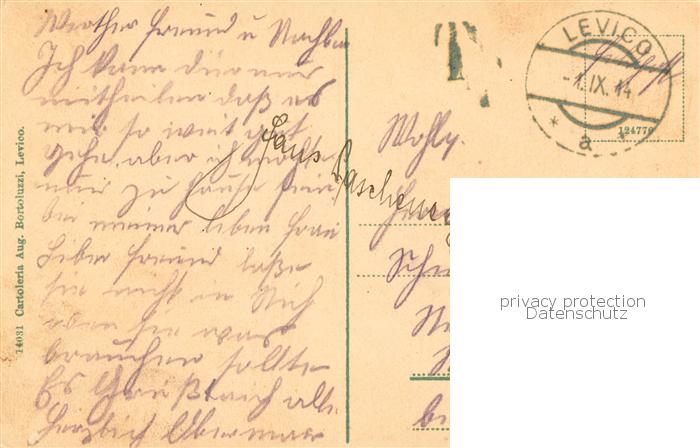 Werther Freund u Nachbar
Ich kann dir nur
mittheilen daß es
mir so weit gut
geht aber ich möchte
nur zu Hause sein
bei meiner lieben Frau
Lieber Freund laße
sie nicht in Stich
wen sie was
brauchen sollte
Es Grüßt euch alle
Herzlich Obermaer
Hans
14031 Cartoleria Aug. Bortoluzzi, Levico.
T
LEVICO
-1.IX.14
* a *
124770
Wohlg.
Herr
privacy protection
Datenschutz